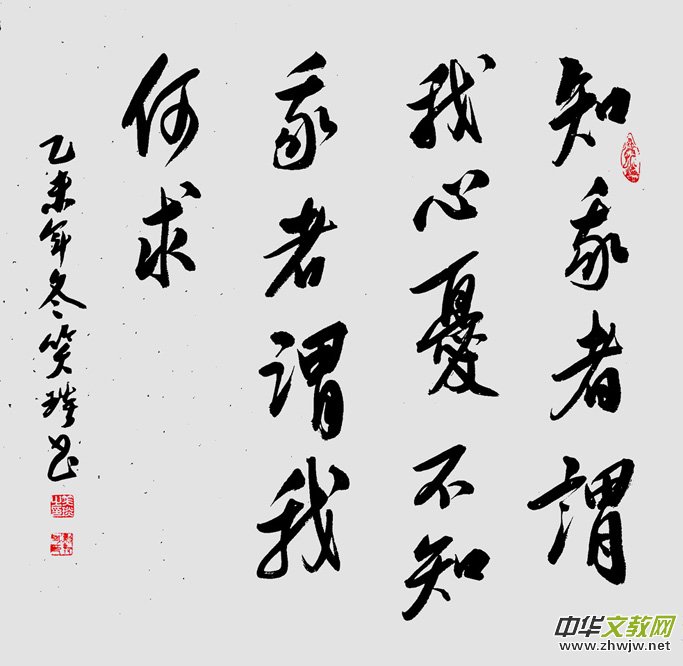 知我者謂
我心憂不知
我者謂我
何求
乙未年冬笑琦书
中华文教网
www.zhwjw.net